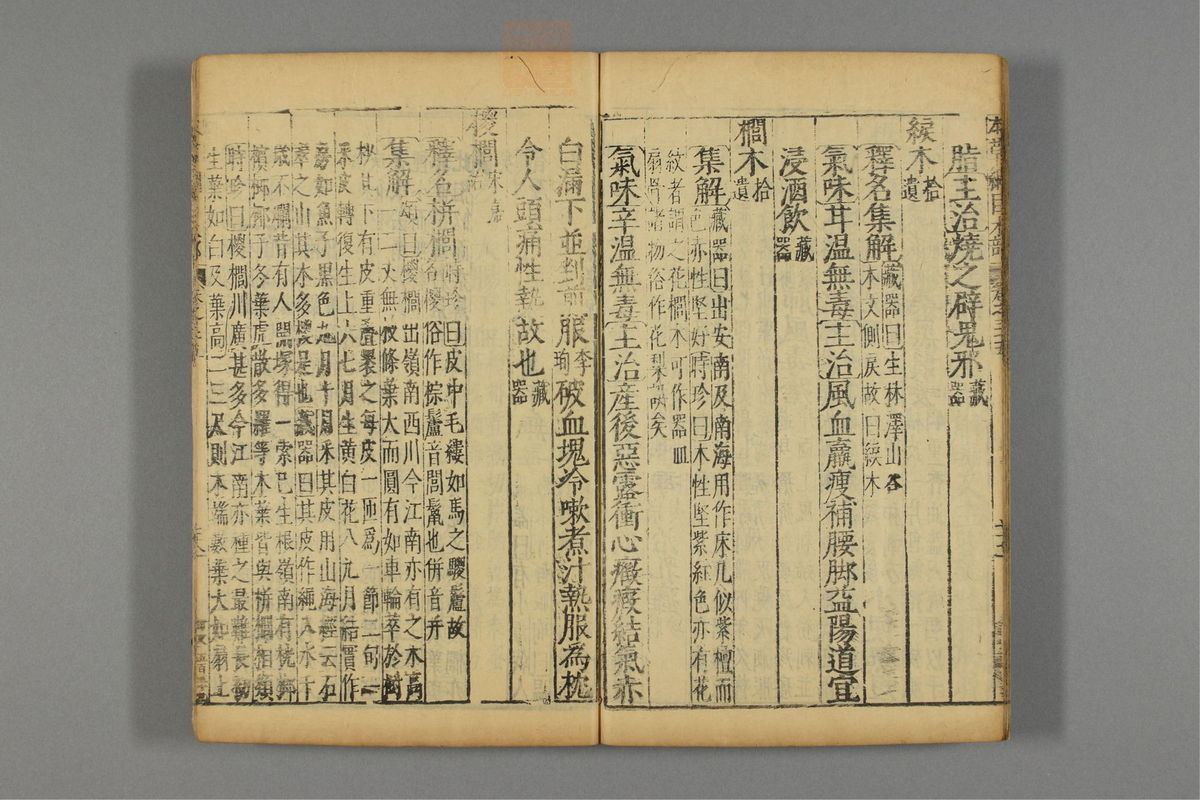 脂主治燒之辟鬼邪藏器
綟木拾遺
釋名集解藏器曰生林澤山谷
木文側戾故曰綟木
氣味甘溫無毒主治風血羸瘦補腰脚益陽道宜
浸酒飲藏器
櫚木拾遺
集解藏器曰出安南及南海用作床几似紫檀而
色赤性堅好時珍曰木性堅紫紅色亦有花
紋者謂之花櫚木可作器皿
扇骨諸物俗作花梨誤矣
氣味辛溫無毒主治產後惡露衝心癥瘕結氣赤
白漏下並剉煎服李珣破血塊冷嗽煮汁熱服為枕
令人頭痛性熱故也藏器
椶櫚宋嘉祐
釋名栟櫚時珍曰皮中毛縷如馬之騣鬛故
名椶俗作棕鬛音閭鬣也栟音并
集解頌曰椶櫚出嶺南西川今江南亦有之木高
一二丈無枝條葉大而圓有如車輪萃於樹
杪其下有皮重疊裹之每皮一匝為一節二旬一
采皮轉復生上六七月生黃白花八九月結實作
房如魚子黑色九月十月采其皮用山海經云石
翠之山其木多椶是也藏器曰其皮作繩入水千
歲不爛昔有人開塚得一索已生根嶺南有桄榔
檳榔椰子冬葉虎散多羅等木葉皆與栟櫚相類
時珍曰椶櫚川廣甚多今江南亦種之最難長初
生葉如白及葉高二三尺則木端數葉大如扇上